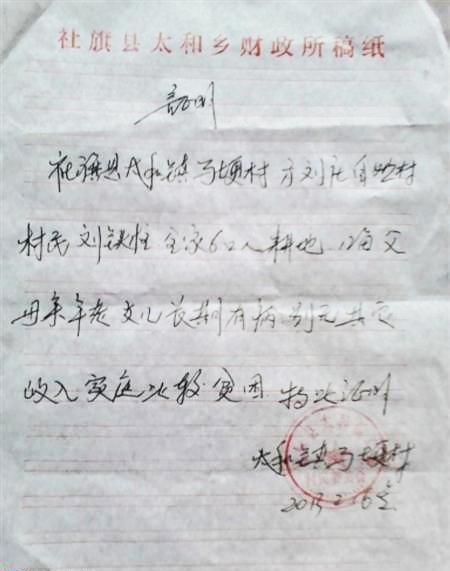 社旗县太和乡财政所稿纸
证明
社旗县太和镇马埂村方刘庄自然村
村民刘铁柱全家6口人耕地12亩父
母亲年老女儿长期有病别无其它
收入家庭比较贫困特此证明
太和镇马埂村